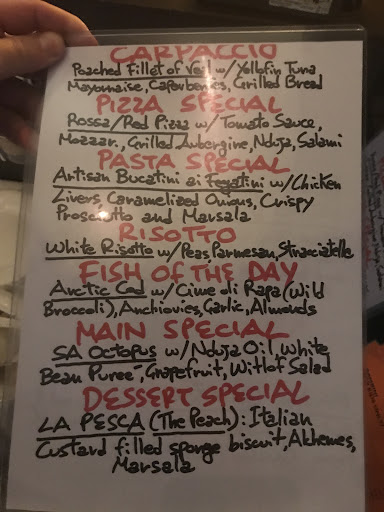 CARPACCIO
Poached Fillet of Veil w/Yellofin Tuna
Mayonaise, Caperberries, Grilled Bread
PIZZA SPECIAL
Rossa/Red Pizza w/Tomato Sauce,
Mozzar., Grilled Aubergine, Nduja, Salami
PASTA SPECIAL
Artisan Bucatini ai Fegatini w/Chicken
Livers, Caramelized Onions, Crispy
Prosciutto and Marsala
RISOTTO
White Risotto w/Peas, Parmesan, Stracciatella
FISH OF THE DAY
Arctic Cod w/Cime di Rapa (Wild
Broccoli), Anchiovies, Garlic, Almonds
MAIN SPECIAL
SA Octopus w/Nduja Oil, White
Bean Pureé, Grapefruit, Witlof Salad
DESSERT SPECIAL
LA PESCA (The Peach): Italian
Custard filled sponge biscuit, Alchemes,
Marsala